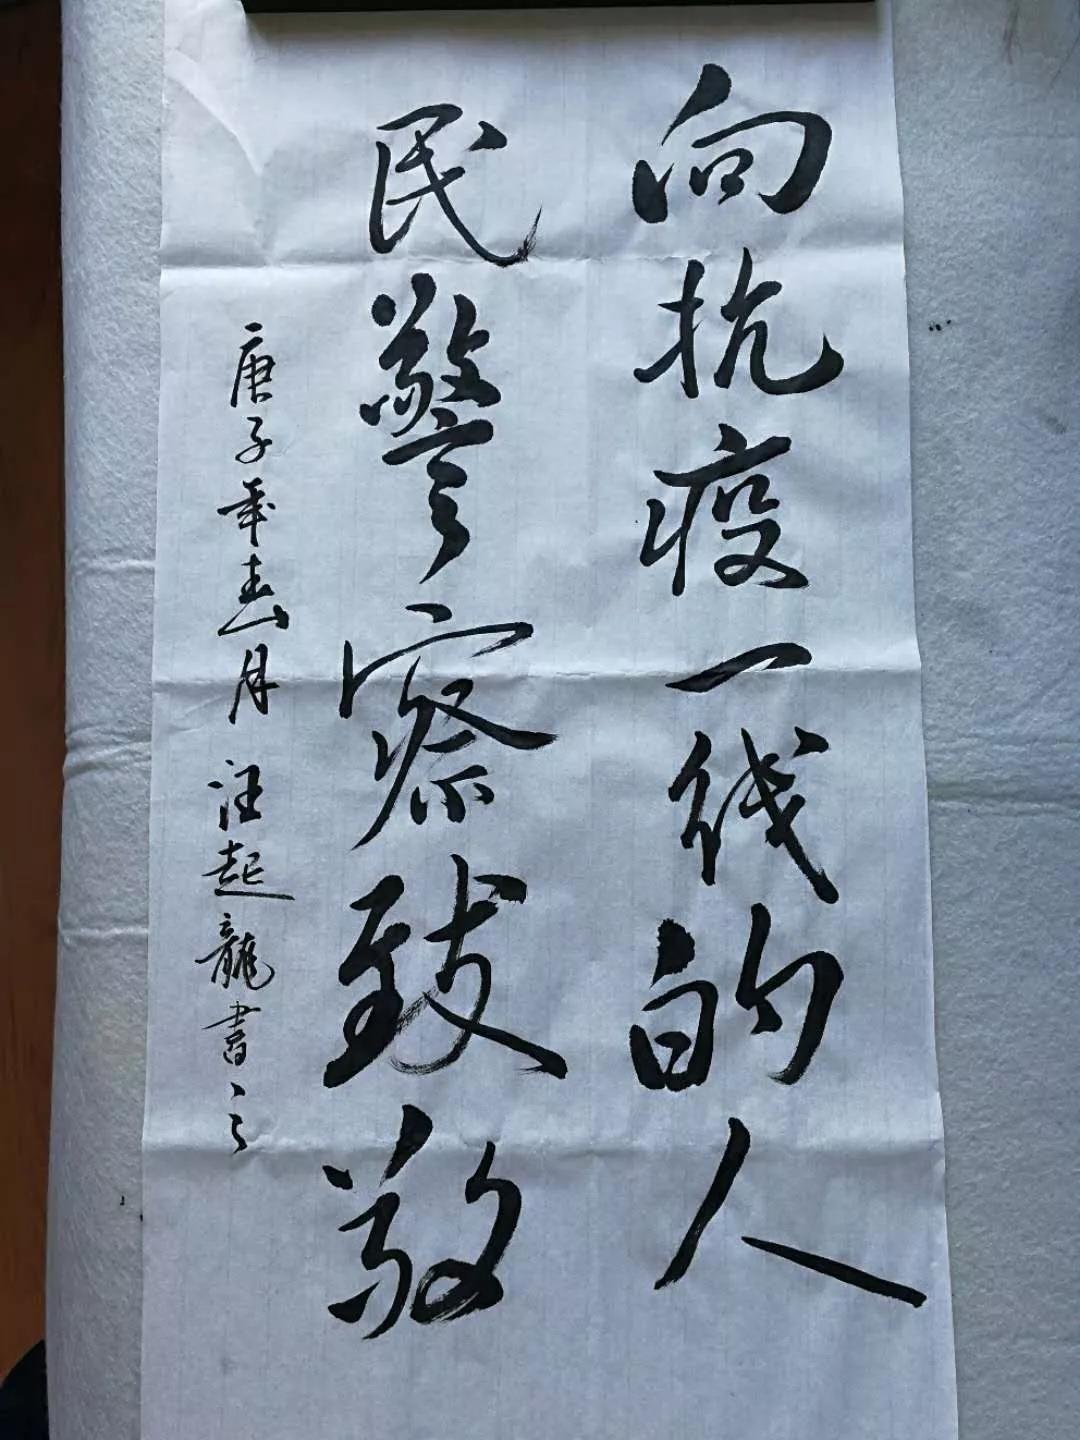 向抗疫一线的人
民警察致敬
庚子年春月 汪起龍書之